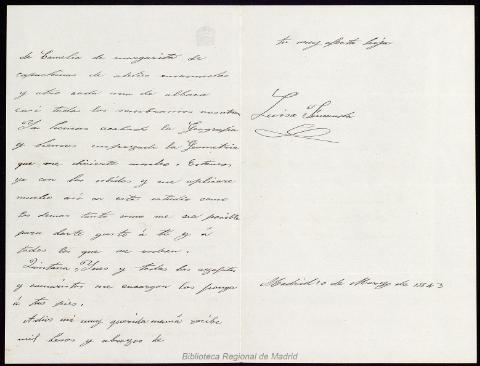 de Camelia de margarita de
capuchinas de aleli
y otro cada una de albaca
casi todas las sembramos nosotras
Ya hemos acabado la Geografia
y hemos empezado la Geometria
que me divierte mucho. Estamos
ya con los y me aplicare
mucho asi en este estudio como
los demas tanto como me sea posible
para darte gusto á ti y á
todos los que me rodean.
Quintana, Ynes y todas las azafatas
y camaristas me encargan las ponga
á tus pies.
Adios mi muy querida mamá recibe
mil besos y abrazos de
tu muy afecta hija
Luisa Fernanda
Madrid 10 de Marzo de 1843
Biblioteca Regional de Madrid